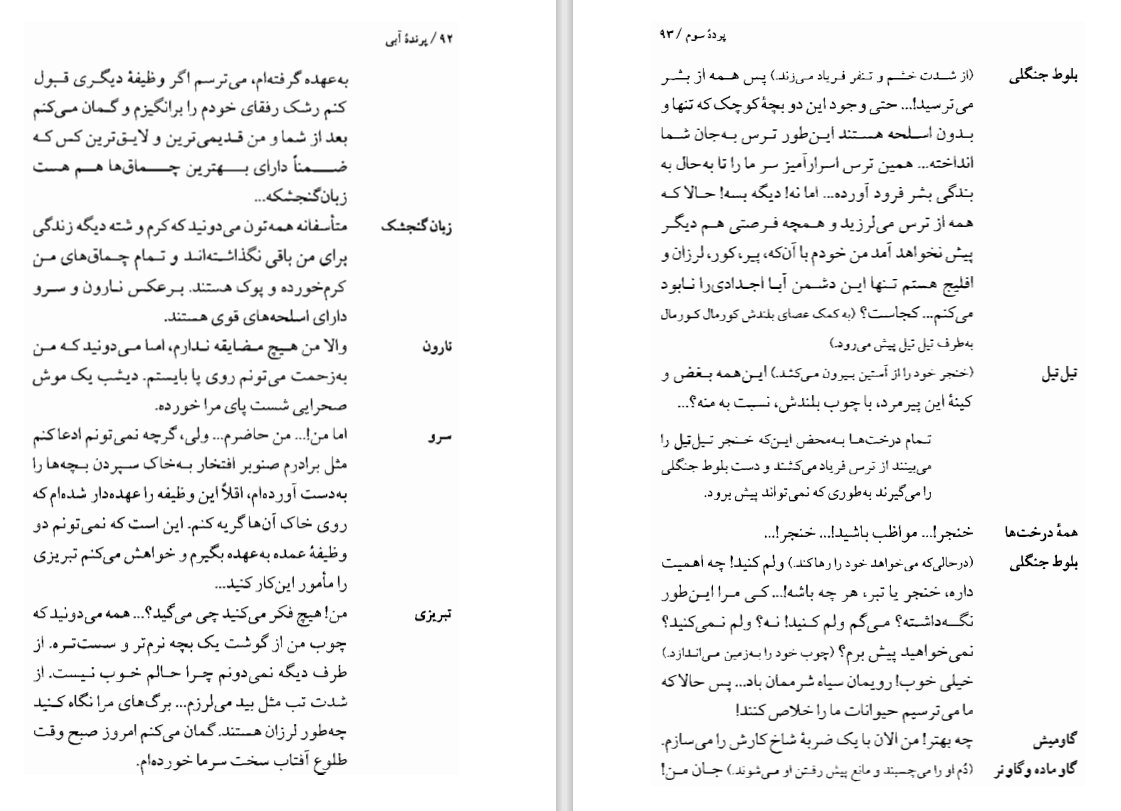 ۹۲ / پرندهٔ آبی
به‌عهده گرفته‌ام، می‌ترسم اگر وظیفهٔ دیگری قبول
کنم رشک رفقای خودم را برانگیزم و گمان می‌کنم
بعد از شما و من قدیمی‌ترین و لایق‌ترین کس که
ضمناً دارای بهترین چماق‌ها هم هست
زبان‌گنجشکه...
زبان‌گنجشک متأسفانه همه‌تون می‌دونید که کرم و شته دیگه زندگی
برای من باقی نگذاشته‌اند و تمام چماق‌های من
کرم‌خورده و پوک هستند. برعکس نارون و سرو
دارای اسلحه‌های قوی هستند.
نارون والا من هیچ مضایقه ندارم، اما می‌دونید که من
به‌زحمت می‌تونم روی پا بایستم. دیشب یک موش
صحرایی شست پای مرا خورده.
سرو اما من!... من حاضرم... ولی، گرچه نمی‌تونم ادعا کنم
مثل برادرم صنوبر افتخار به‌خاک سپردن بچه‌ها را
به‌دست آورده‌ام، اقلاً این وظیفه را عهده‌دار شده‌ام که
روی خاک آن‌ها گریه کنم. این است که نمی‌تونم دو
وظیفهٔ عمده به‌عهده بگیرم و خواهش می‌کنم تبریزی
را مأمور این‌کار کنید...
تبریزی من! هیچ فکر می‌کنید چی می‌گید؟... همه می‌دونید که
چوب من از گوشت یک بچه نرم‌تر و سست‌تره. از
طرف دیگه نمی‌دونم چرا حالم خوب نیست. از
شدت تب مثل بید می‌لرزم... برگ‌های مرا نگاه کنید
چه‌طور لرزان هستند. گمان می‌کنم امروز صبح وقت
طلوع آفتاب سخت سرما خورده‌ام.
پردهٔ سوم / ۹۳
بلوط جنگلی (از شدت خشم و تنفر فریاد می‌زند.) پس همه از بشر
می‌ترسید!... حتی وجود این دو بچهٔ کوچک که تنها و
بدون اسلحه هستند این‌طور ترس به‌جان شما
انداخته... همین ترس اسرارآمیز سر ما را تا به‌حال به
بندگی بشر فرود آورده... اما نه! دیگه بسه! حالا که
همه از ترس می‌لرزید و همچه فرصتی هم دیگر
پیش نخواهد آمد من خودم با آن‌که، پیر، کور، لرزان و
افلیج هستم تنها این دشمن آبا اجدادی‌را نابود
می‌کنم... کجاست؟ (به کمک عصای بلندش کورمال کورمال
به‌طرف تیل تیل پیش می‌رود.)
تیل‌تیل (خنجر خود را از آستین بیرون می‌کشد.) این‌همه بغض و
کینهٔ این پیرمرد، با چوب بلندش، نسبت به منه؟...
تمام درخت‌ها به‌محض این‌که خنجر تیل‌تیل را
می‌بینند از ترس فریاد می‌کشند و دست بلوط جنگلی
را می‌گیرند به‌طوری که نمی‌تواند پیش برود.
همهٔ درخت‌ها خنجر!... مواظب باشید!... خنجر!...
بلوط جنگلی (درحالی‌که می‌خواهد خود را رها کند.) ولم کنید! چه اهمیت
داره، خنجر یا تبر، هر چه باشه!... کی مرا این‌طور
نگه‌داشته؟ می‌گم ولم کنید! نه؟ ولم نمی‌کنید؟
نمی‌خواهید پیش برم؟ (چوب خود را به‌زمین می‌اندازد.)
خیلی خوب! رویمان سیاه شرممان باد... پس حالا که
ما می‌ترسیم حیوانات ما را خلاص کنند!
گاومیش چه بهتر! من الان با یک ضربهٔ شاخ کارش را می‌سازم.
گاو ماده و گاو نر (دُم او را می‌چسبند و مانع پیش رفتن او می‌شوند.) جان من!